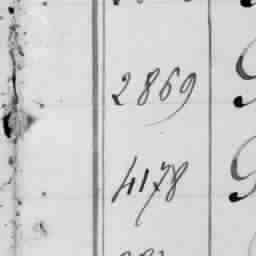 2869
4178